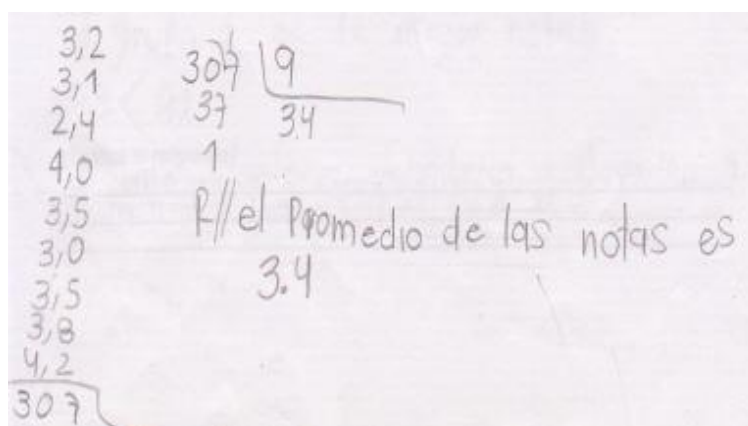 3,2
3,1
2,4
4,0
3,5
3,0
3,5
3,8
4,2
307
307 9
37 3.4
1
R// el Promedio de las notas es
3.4